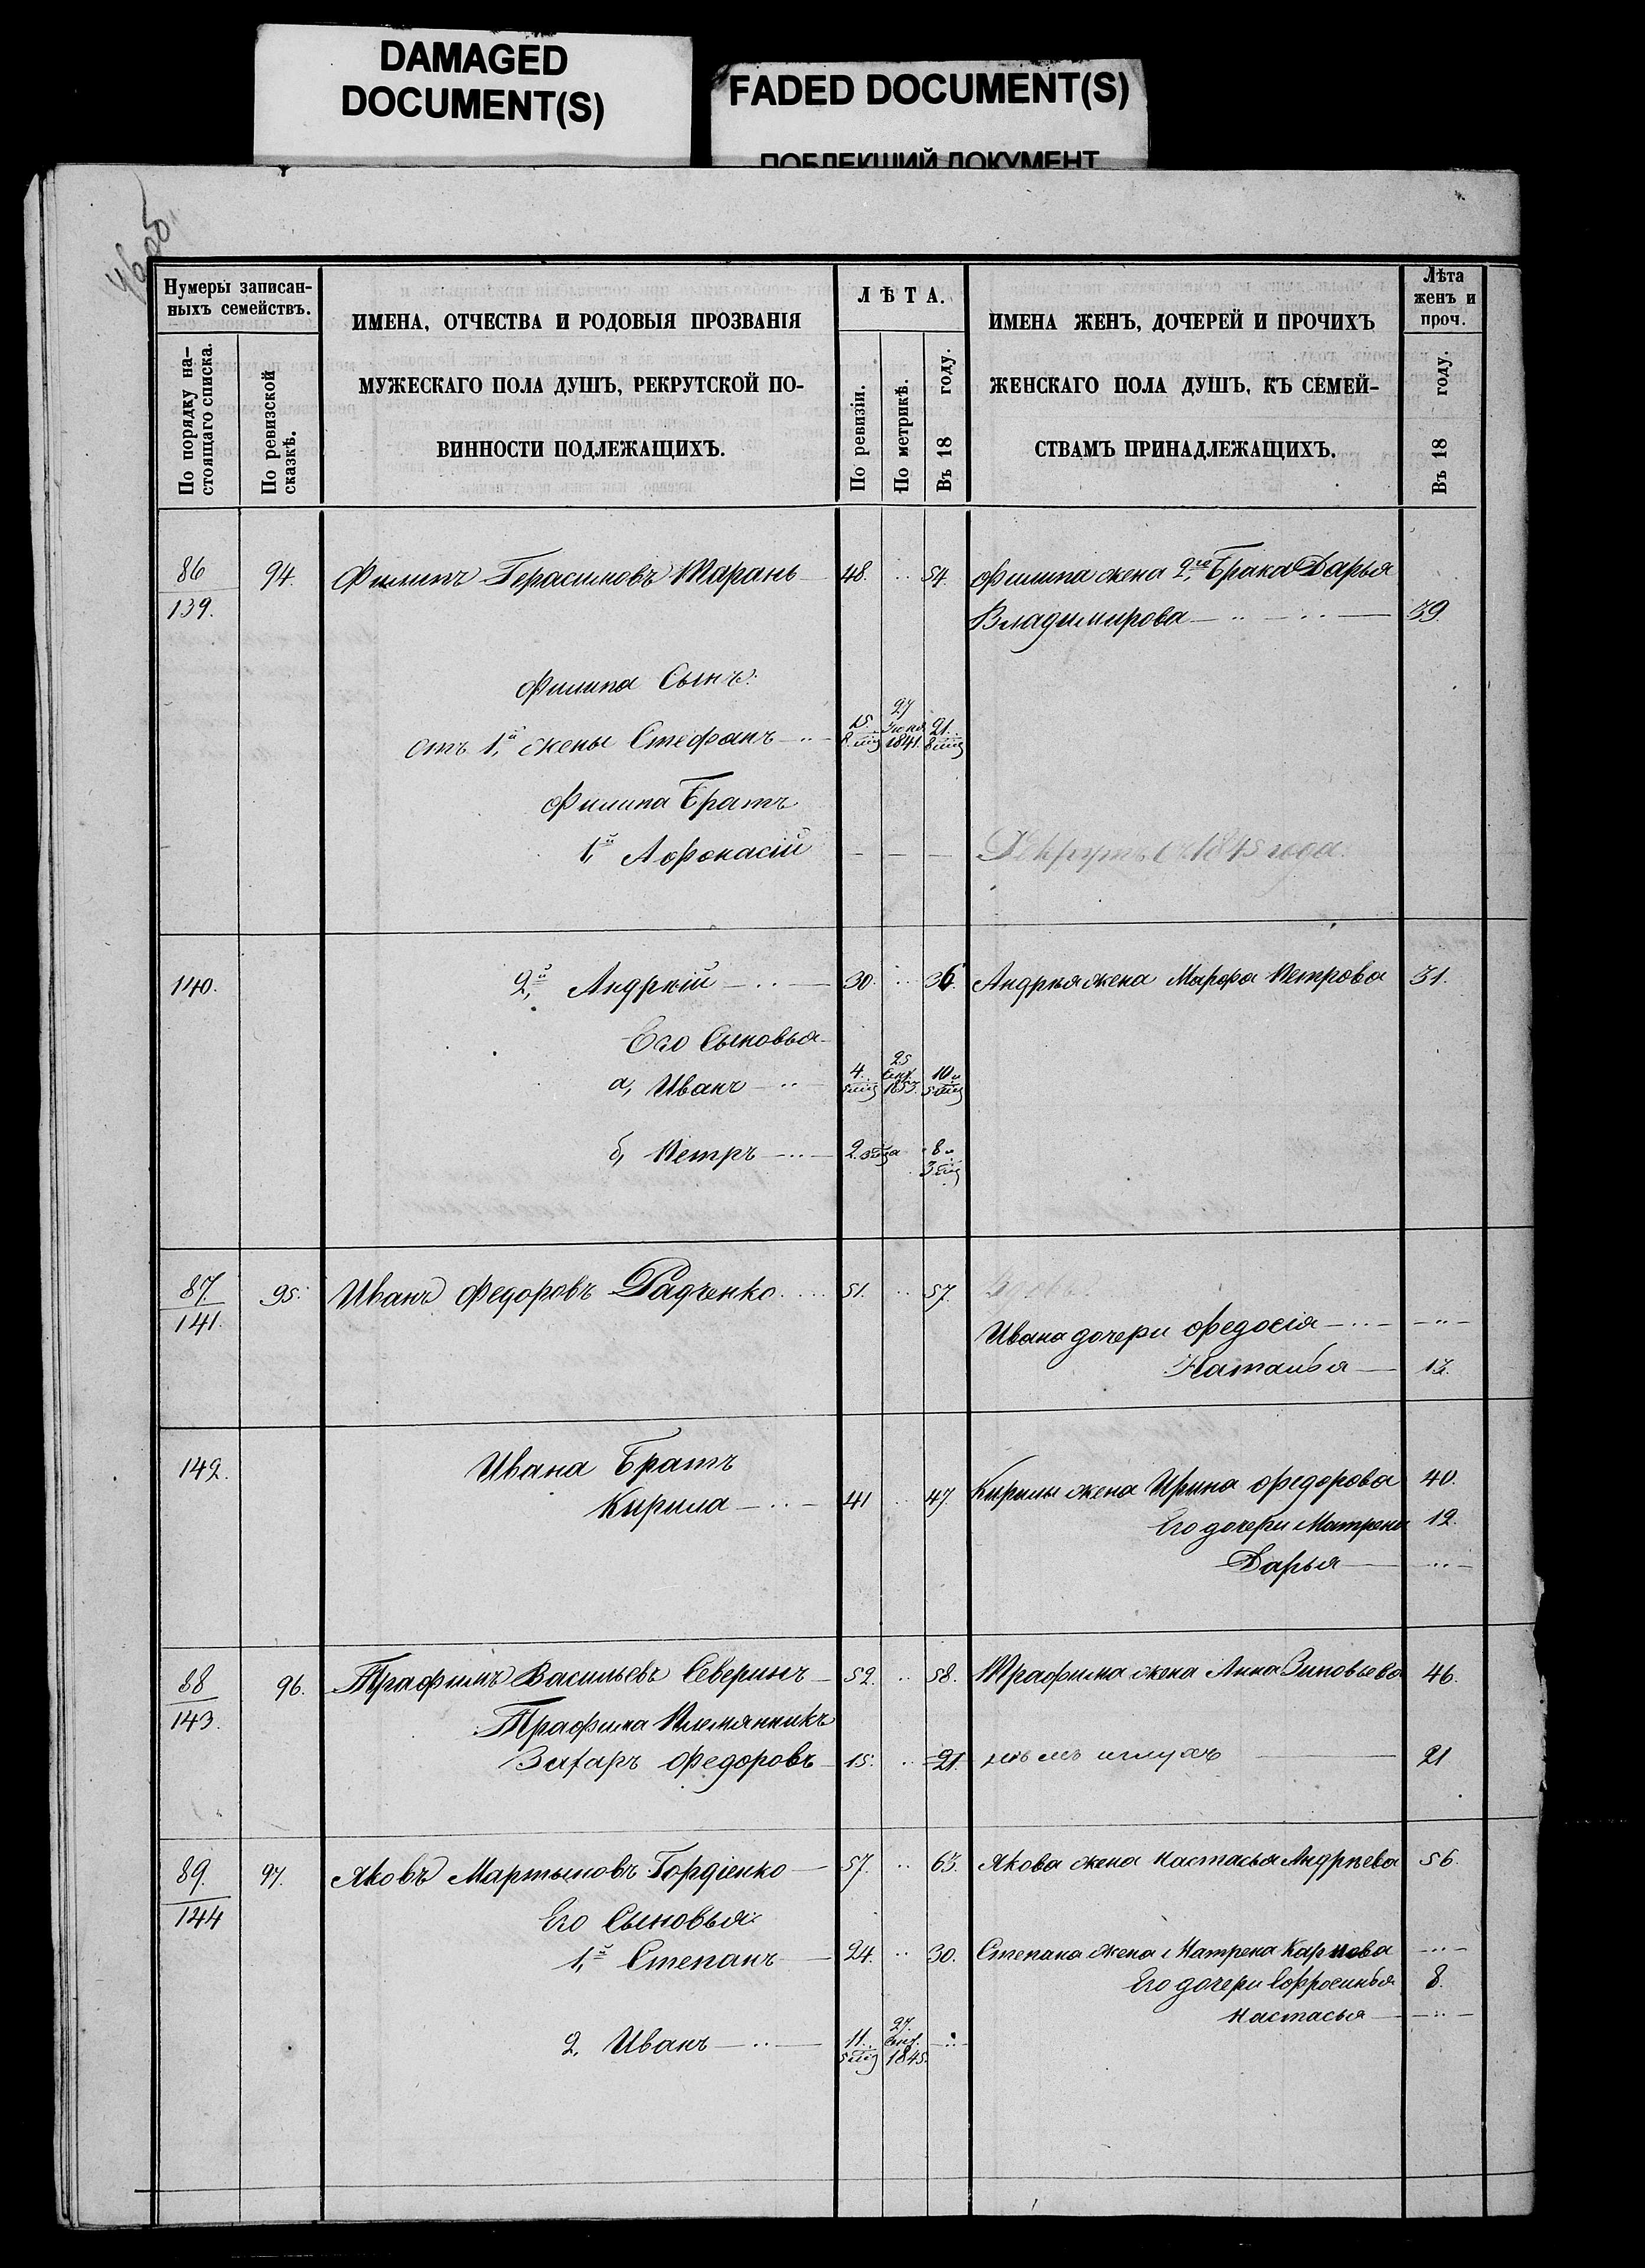 DAMAGED
DOCUMENT(S)
FADED DOCUMENT(S)
ПОБЛЕКШИЙ ДОКУМЕНТ
Нумеры записан-
ныхъ семействъ.
По порядку на-
стоящаго списка.
По ревизской
сказкѣ.
ИМЕНА, ОТЧЕСТВА И РОДОВЫЯ ПРОЗВАНІЯ
МУЖЕСКАГО ПОЛА ДУШЪ, РЕКРУТСКОЙ ПО-
ВИННОСТИ ПОДЛЕЖАЩИХЪ.
ЛѢТА.
По ревизіи.
По метрикѣ.
Въ 18 году.
ИМЕНА ЖЕНЪ, ДОЧЕРЕЙ И ПРОЧИХЪ
ЖЕНСКАГО ПОЛА ДУШЪ, КЪ СЕМЕЙ-
СТВАМЪ ПРИНАДЛЕЖАЩИХЪ.
Лѣта
женъ и
проч.
Въ 18 году.
86 94. Филипъ Герасимовъ Тарань 48. 54. Филипа жена 2го Брака Дарья
139. Владимирова 39.
Филипа Сынъ:
27
отъ 1,й жены Стефанъ 15. 21.
8 1841. 8
Филипа Братъ
1,й Афонасій Рекрутъ 1845 года.
140. 2,й Андрѣй 30. 36. Андрѣя жена Марфа Петрова 31.
Его Сыновья
25
а, Иванъ 4. 10 и
5 1853. 5
б, Петръ 2. 8 и
3
87. 95. Иванъ Федоровъ Радченко 51. 57. Вдовъ
141. Ивана дочери Федосія
Наталья 13.
142. Ивана Братъ
Кирила 41 47. Кирилы жена Ирина Федорова 40.
Его дочери Матрена 12.
Дарья
88 96. Трафимъ Васильевъ Северинъ 52. 58. Трафима жена Анна Зиновьева 46.
143. Трафима Племянникъ
Захаръ Федоровъ 15. 21. 21
89. 97. Яковъ Мартыновъ Гордіенко 57. 63. Якова жена Настасья Андрѣева 56.
144 Его Сыновья:
1,й Степанъ 24. 30. Степана жена Матрена Карпова
Его дочери Ефросинья 8.
Настасья
27.
2, Иванъ 11.
5 1845.